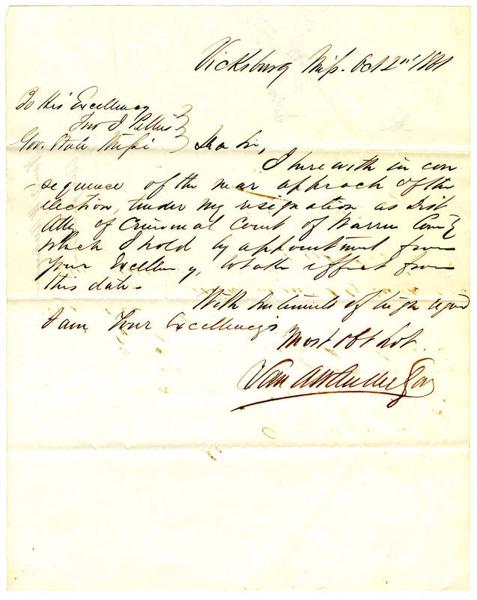 Vicksburg Miss. Oct 2nd 1861
To His Excellency
Jno J Pettus
Gov. State Missi Dear Sir,
I herewith in con
-sequence of the near approach of the
election, tender my resignation as Dist
Atty of Criminal Court of Warren County
which I hold by appointment from
your Excellency, to take effect from
this date -
With sentiments of high regard
I am Your Excellency's
Most Obt Svt.